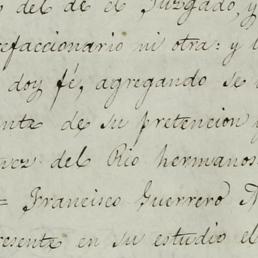 del de el Juzgado, y
efaccionario ni otra: y
doy fé, agregando se
enta de su pretencion
vez del Rio hermanos
= Francisco Guerrero
resenta en su estudio el